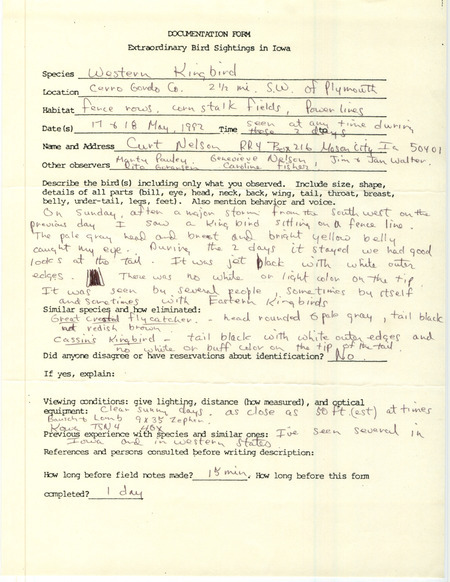 DOCUMENTATION FORM
Extraordinary Bird Sightings in Iowa
Species Western Kingbird
Location Cerro Gordo Co. 2½ mi. S.W. of Plymouth
Habitat fence rows, corn stalk fields, Power lines
Date(s) 17 & 18 May, 1982 Time seen at any time during
those 2 days
Name and Address Curt Nelson RR4 Box 216 Mason City Ia 50401
Other observers Marty Pauley, Genevieve Nelson, Jim & Jan Walter,
Rita Caroline Fisher,
Describe the bird(s) including only what you observed. Include size, shape,
details of all parts (bill, eye, head, neck, back, wing, tail, throat, breast,
belly, under-tail, legs, feet). Also mention behavior and voice.
On Sunday, after a major storm from the south west on the
previous day I saw a king bird sitting on a fence line.
The pale gray head and breast and bright yellow belly
caught my eye. During the 2 days it stayed we had good
looks at the tail. It was jet black with white outer
edges. There was no white or light color on the tip.
It was seen by several people sometimes by itself
and sometimes with Eastern Kingbirds
Similar species and how eliminated:
Great crested flycatcher - head rounded & pale gray, tail black
not redish brown.
Cassins Kingbird - tail black with white outer edges and
no white or buff color on the tip of the tail.
Did anyone disagree or have reservations about identification? No
If yes, explain:
Viewing conditions: give lighting, distance (how measured), and optical
equipment: Clear sunny days. as close as 50 ft (est) at times
Bausch & Lomb 9x35 Zephyr.
Kowa TSN4 40x
Previous experience with species and similar ones: I've seen several in
Iowa and in western states
References and persons consulted before writing description:
How long before field notes made? 15 min. How long before this form
completed? 1 day